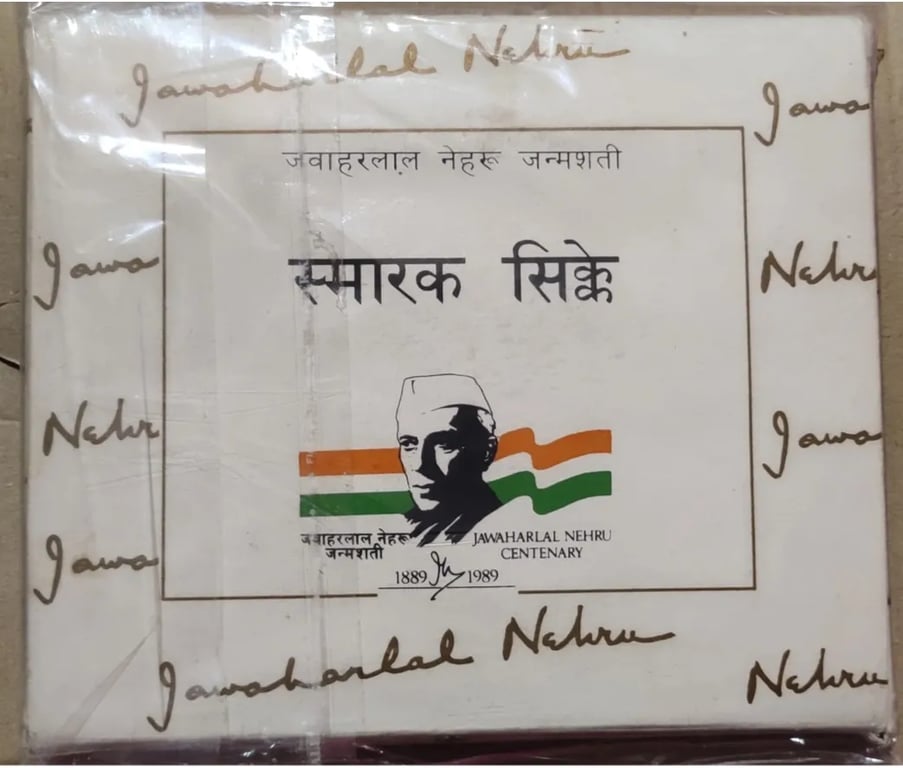 Jawaharlal Nehru
Jawa
जवाहरलाल नेहरू जन्मशती
Jawa
स्मारक सिक्के
Nehr
Nehr
Jawa
जवाहरलाल नेहरू
जन्मशती
JAWAHARLAL NEHRU
CENTENARY
Jawa
1889 1989
Jawaharlal Nehru
Nehru